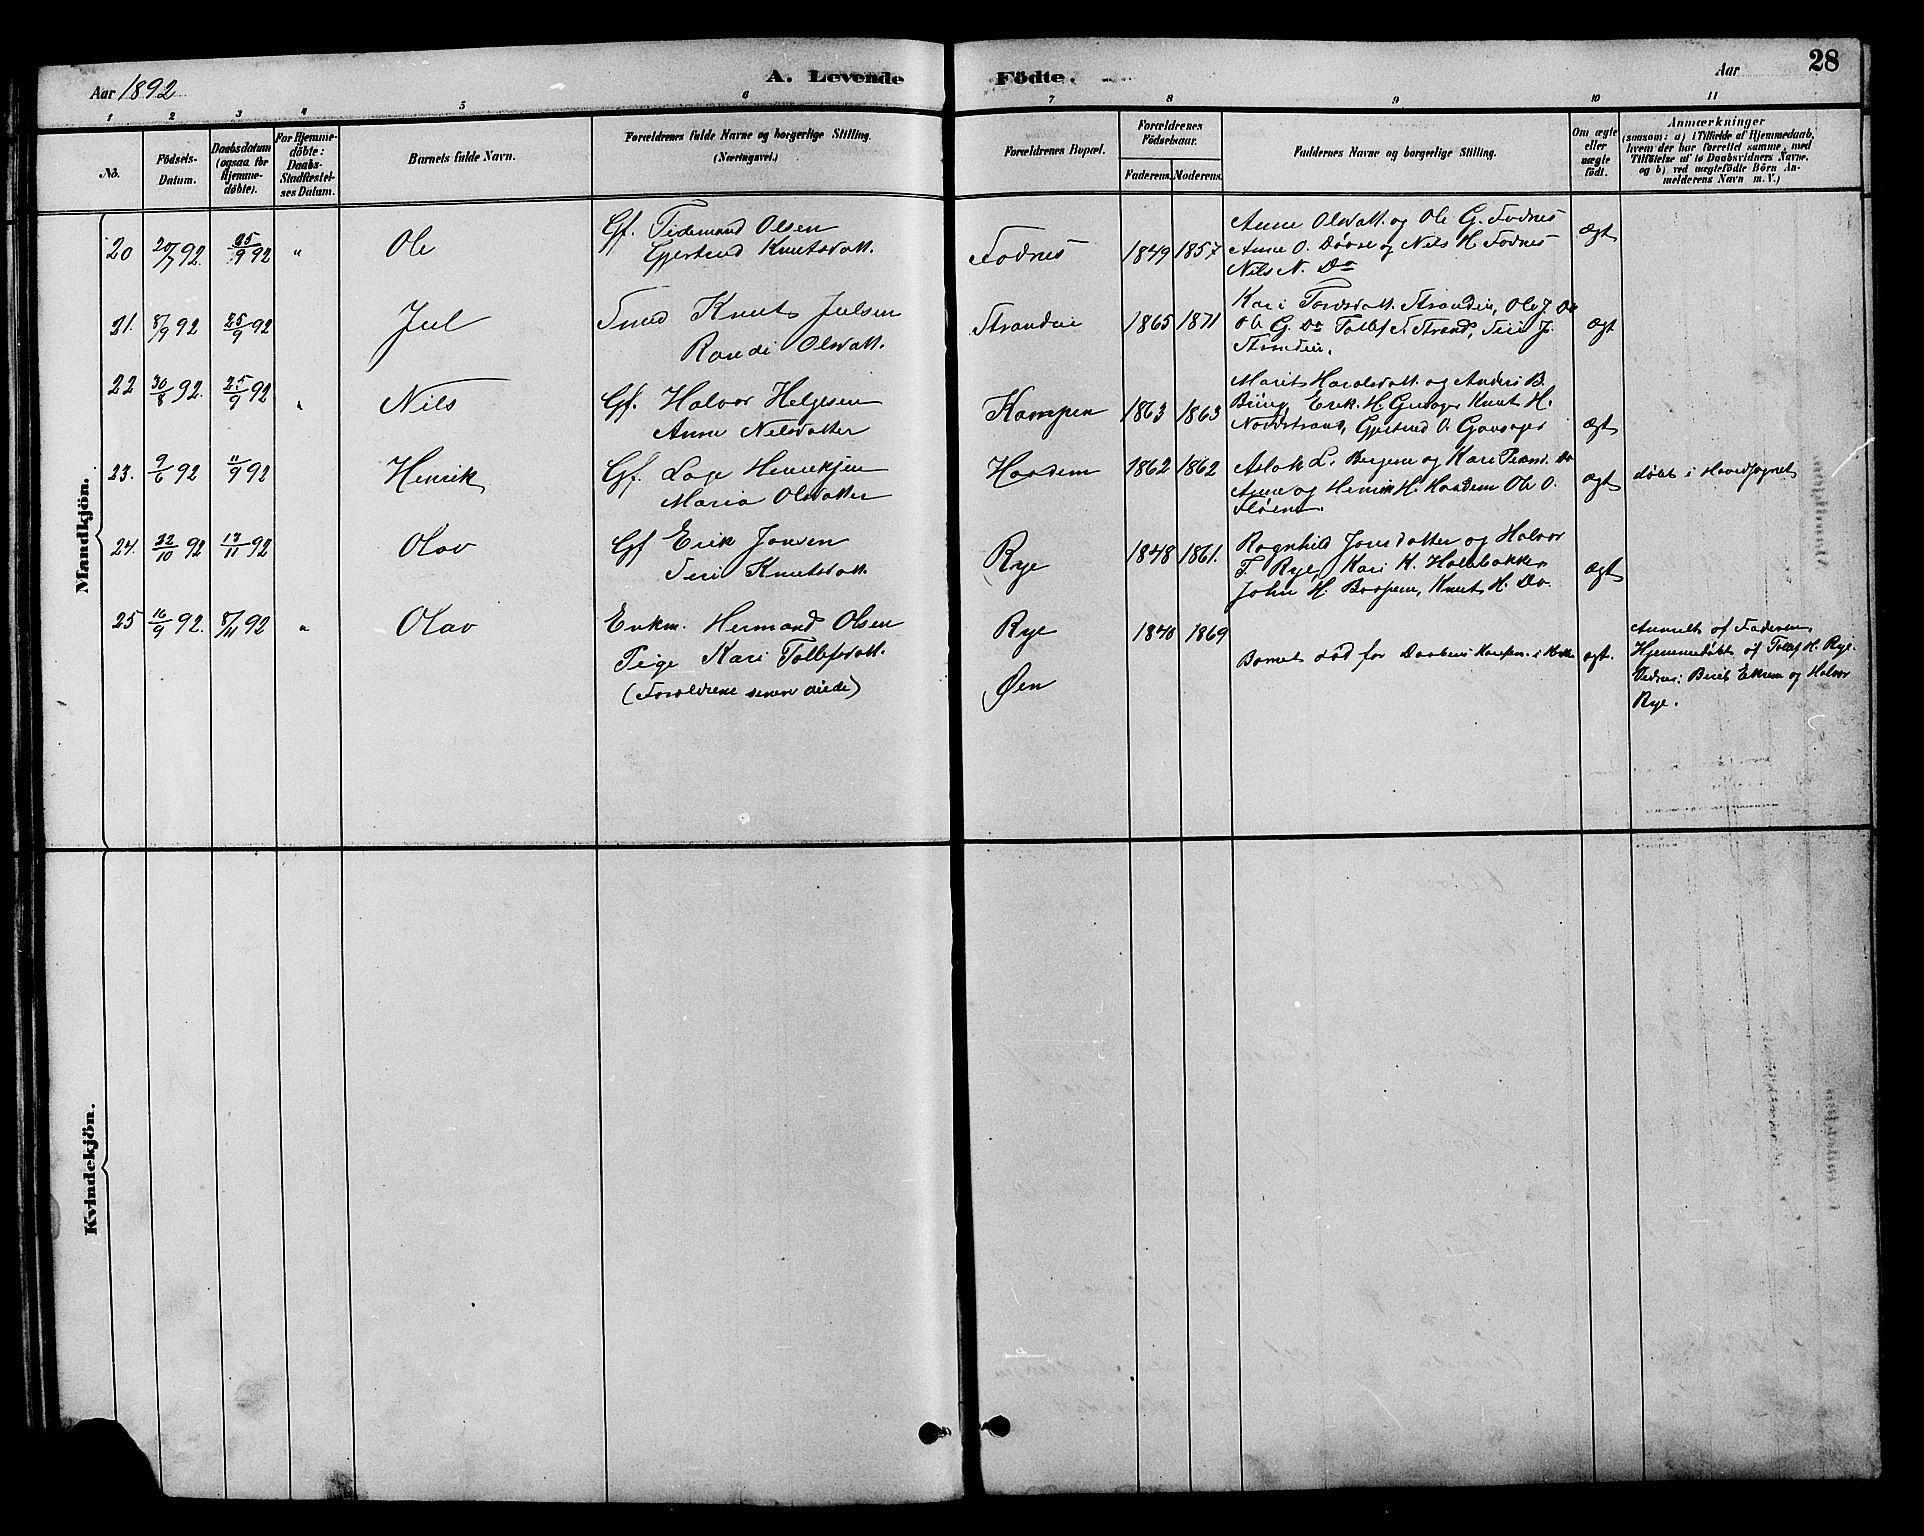 28
A. Levende Födte.
Aar 1892
Aar
1 2 3 4 5 6 7 8 9 10 11
No.
Födsels-Datum.
Daabsdatum (ogsaa for Hjemmedöbte).
For Hjemmedöbte: Daabs-Stadfæstelses Datum.
Barnets fulde Navn.
Forældrenes fulde Navne og borgerlige Stilling. (Næringsvei.)
Forældrenes Bopæl.
Forældrenes Födselsaar.
Faderens. Moderens.
Faddernes Navne og borgerlige Stilling.
Om ægte eller uægte födt.
Anmærkninger
(saasom: a) i Tilfælde af Hjemmedaab, hvem der har forrettet samme, med Tilföielse af to Daabsvidners Navne, og b) ved uægtefödte Börn Anmelderens Navn m. V.)
Mandkjön.
20 20/7 92. 25/9 92 " Ole
Gf. Tidemand Olsen
Gjertrud Knutsdatt.
Fodnes 1849 1857
Anne Olsdatt. og Ole G. Fodnes
Anne O. Dövre og Nils H. Fodnes
Nils N. Do
ægt
21. 8/9 92 25/9 92 Jul
Smed Knut Julsen
Randi Olsdatt.
Strandeie 1865 1871
Kari Tordsdatt. Strandeie, Ole J. Do
Ole G. Do Tollef S. Strand, Siri J.
Strandeie.
ægt
22 30/8 92. 25/9 92 " Nils
Gf. Halvor Helgesen
Anne Nilsdatter
Kampen 1863 1863
Marit Haralsdatt. og Anders B.
Erik H. Knut H.
Nordstrand, Gjertrud O.
ægt
23. 9/6 92 11/9 92 Henrik
Gf. Lage Henriksen
Maria Olsdatter
Haadem 1862 1862
Aslak L. Bergene og Kari Do
Anne og Henrik H. Haadem Ole O.
ægt
döbt i Hovedsognet
24. 22/10 92 13/11 92 Olav
Gf Erik Jonsen
Siri Knutsdatt.
Rye 1848 1861.
Ragnhild Jonsdatter og Halvor
T. Rye, Kari K. Holebakke,
John H. Knut H. Do.
ægt
25 16/9 92. 8/11 92 " Olav
Enkm. Hermand Olsen
Pige Kari Tollefsdatt.
(Forældrene senere viede)
Rye
Øen
1840 1869
Barnet död för Daaben i Kirken
ægt.
Anmeldt af Faderen
Hjemmedöbt af Tollef H. Rye.
Vidner: Berit Ekren og Halvor
Rye.
Kvindekjön.